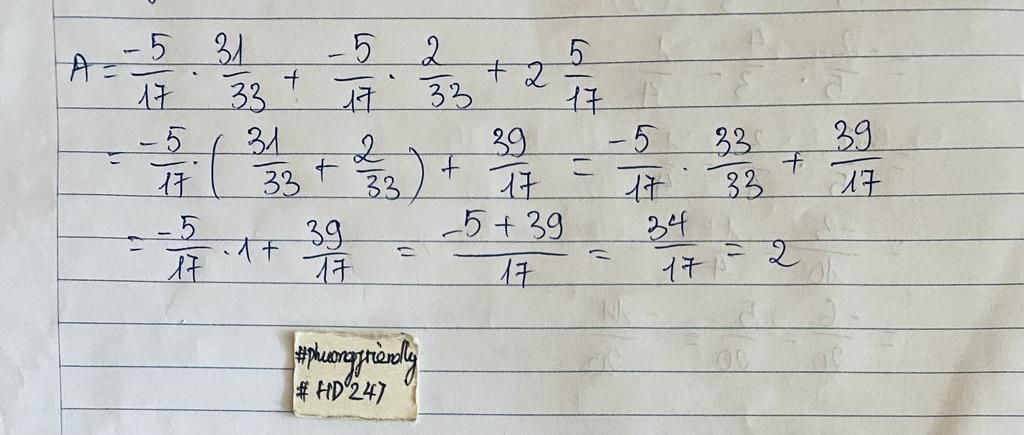 A = \frac{-5}{17} \cdot \frac{31}{33} + \frac{-5}{17} \cdot \frac{2}{33} + 2 \frac{5}{17}
= \frac{-5}{17} \cdot ( \frac{31}{33} + \frac{2}{33} ) + \frac{39}{17} = \frac{-5}{17} \cdot \frac{33}{33} + \frac{39}{17}
= \frac{-5}{17} \cdot 1 + \frac{39}{17} = \frac{-5 + 39}{17} = \frac{34}{17} = 2
#phuongfriendly
# HD 247